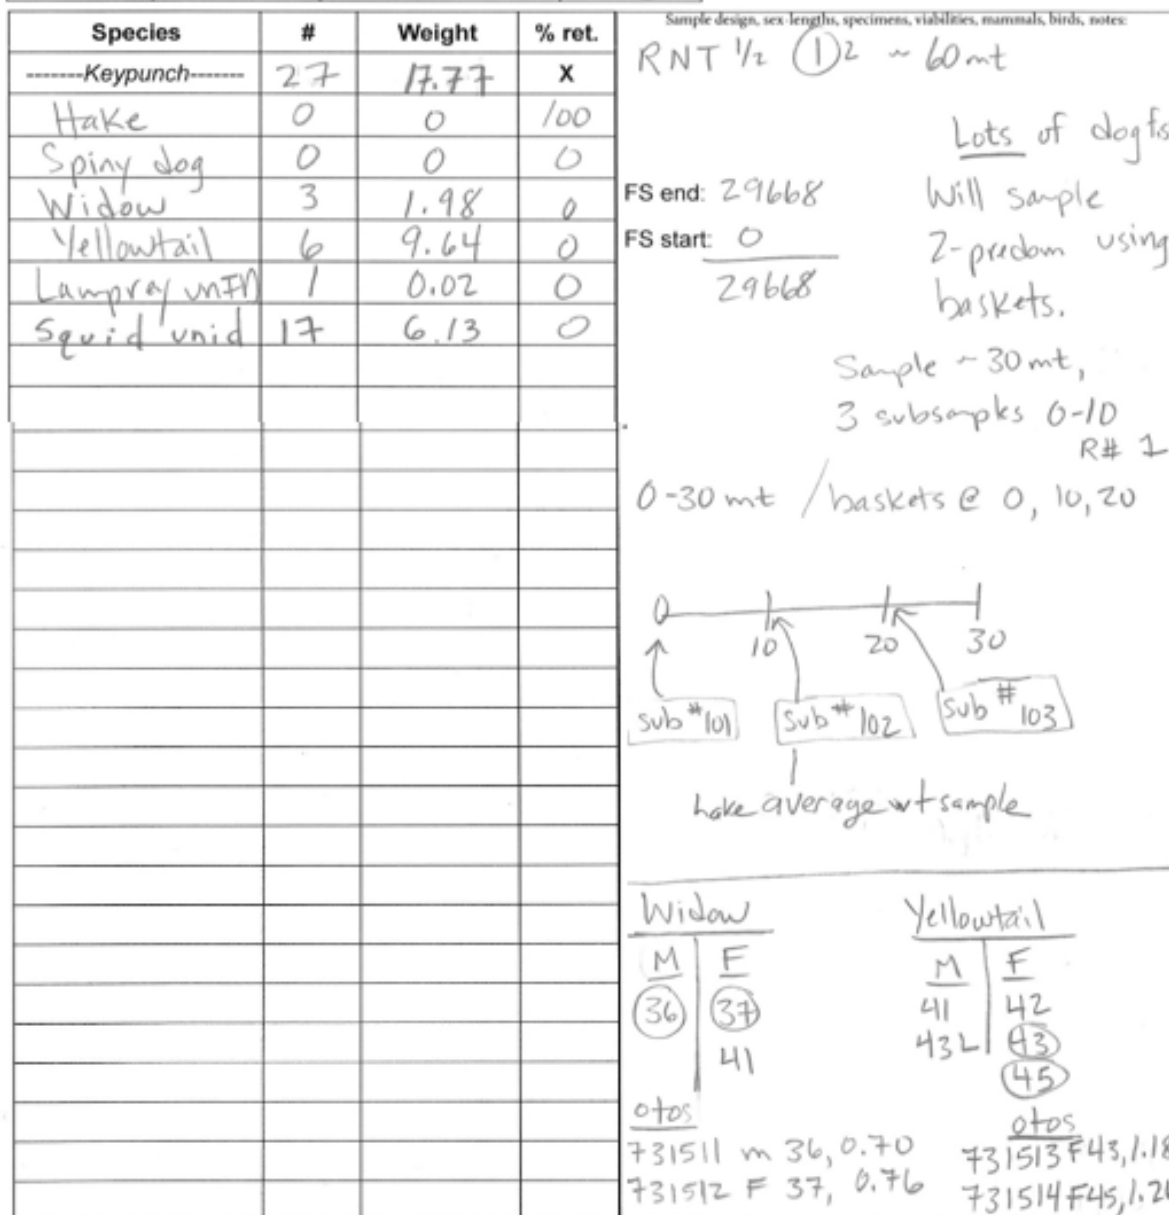 Species # Weight % ret.
-------Keypunch------- 27 17.77 X
Hake 0 0 100
Spiny dog 0 0 0
Widow 3 1.98 0
Yellowtail 6 9.64 0
Lamprey unID 1 0.02 0
Squid unid 17 6.13 0
Sample design, sex-lengths, specimens, viabilities, mammals, birds, notes:
RNT 1/2 ① 2 ~ 60 mt
Lots of dogfis
FS end: 29668
FS start: 0
29668
Will sample
2-predom using
baskets.
Sample ~ 30 mt,
3 subsampks 0-10
R# 1
0-30 mt / baskets @ 0, 10, 20
0 10 20 30
Sub #101 Sub #102 Sub #103
hake average wt sample
Widow
M F
36 37
41
otos
731511 m 36, 0.70
731512 F 37, 0.76
Yellowtail
M F
41 42
43L 43
45
otos
731513 F43, 1.18
731514 F45, 1.26